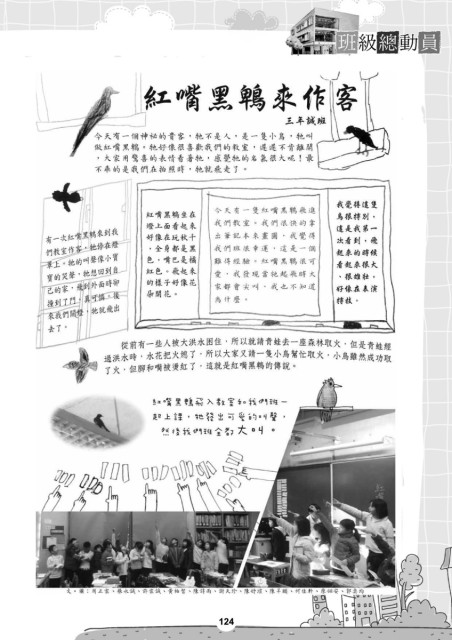 班級總動員
紅嘴黑鵯來作客
三年誠班
今天有一個神祕的貴客，牠不是人，是一隻小鳥，牠叫
做紅嘴黑鵯。牠好像很喜歡我們的教室，遲遲不肯離開
，大家用驚喜的表情看著牠，感覺牠的名氣很大呢！最
不乖的是我們在拍照時，牠就飛走了。
有一次紅嘴黑鵯來到我
們教室作客，牠停在燈
罩上。牠的叫聲像小寶
寶的哭聲。牠想回到自
己的家，飛到外面時卻
撞到了門，真可憐。後
來我們關燈，牠就飛出
去了。
紅嘴黑鵯坐在
燈上面看起來
好像在玩秋千
。全身都是黑
色，嘴巴是橘
紅色。飛起來
的樣子好像花
朵開花。
今天有一隻紅嘴黑鵯飛進
我們教室，我們很快的拿
出筆記本來畫圖，我覺得
我們班很幸運，這是一個
難得經驗。紅嘴黑鵯很可
愛，我發現當牠起飛時大
家都會尖叫，我也不知道
為什麼。
我覺得這隻
鳥很特別，
這是我第一
次看到，飛
起來的時候
看起來很大
、很雄壯，
好像在表演
特技。
從前有一些人被大洪水困住，所以就請青蛙去一座森林取火，但是青蛙經
過洪水時，水花把火熄了，所以大家又請一隻小鳥幫忙取火，小鳥雖然成功取
了火，但腳和嘴被燙紅了，這就是紅嘴黑鵯的傳說。
紅嘴黑鵯飛入教室和我們班一
起上課，牠發出可愛的叫聲，
然後我們班全都大叫。
124